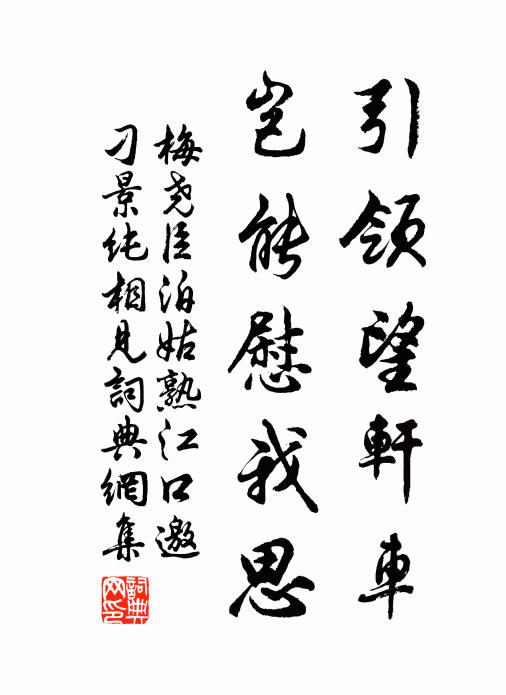 引領望軒車
豈能慰我思
梅堯臣泊姑熟江口邀
刁景純相見詞典網集
詞典網印